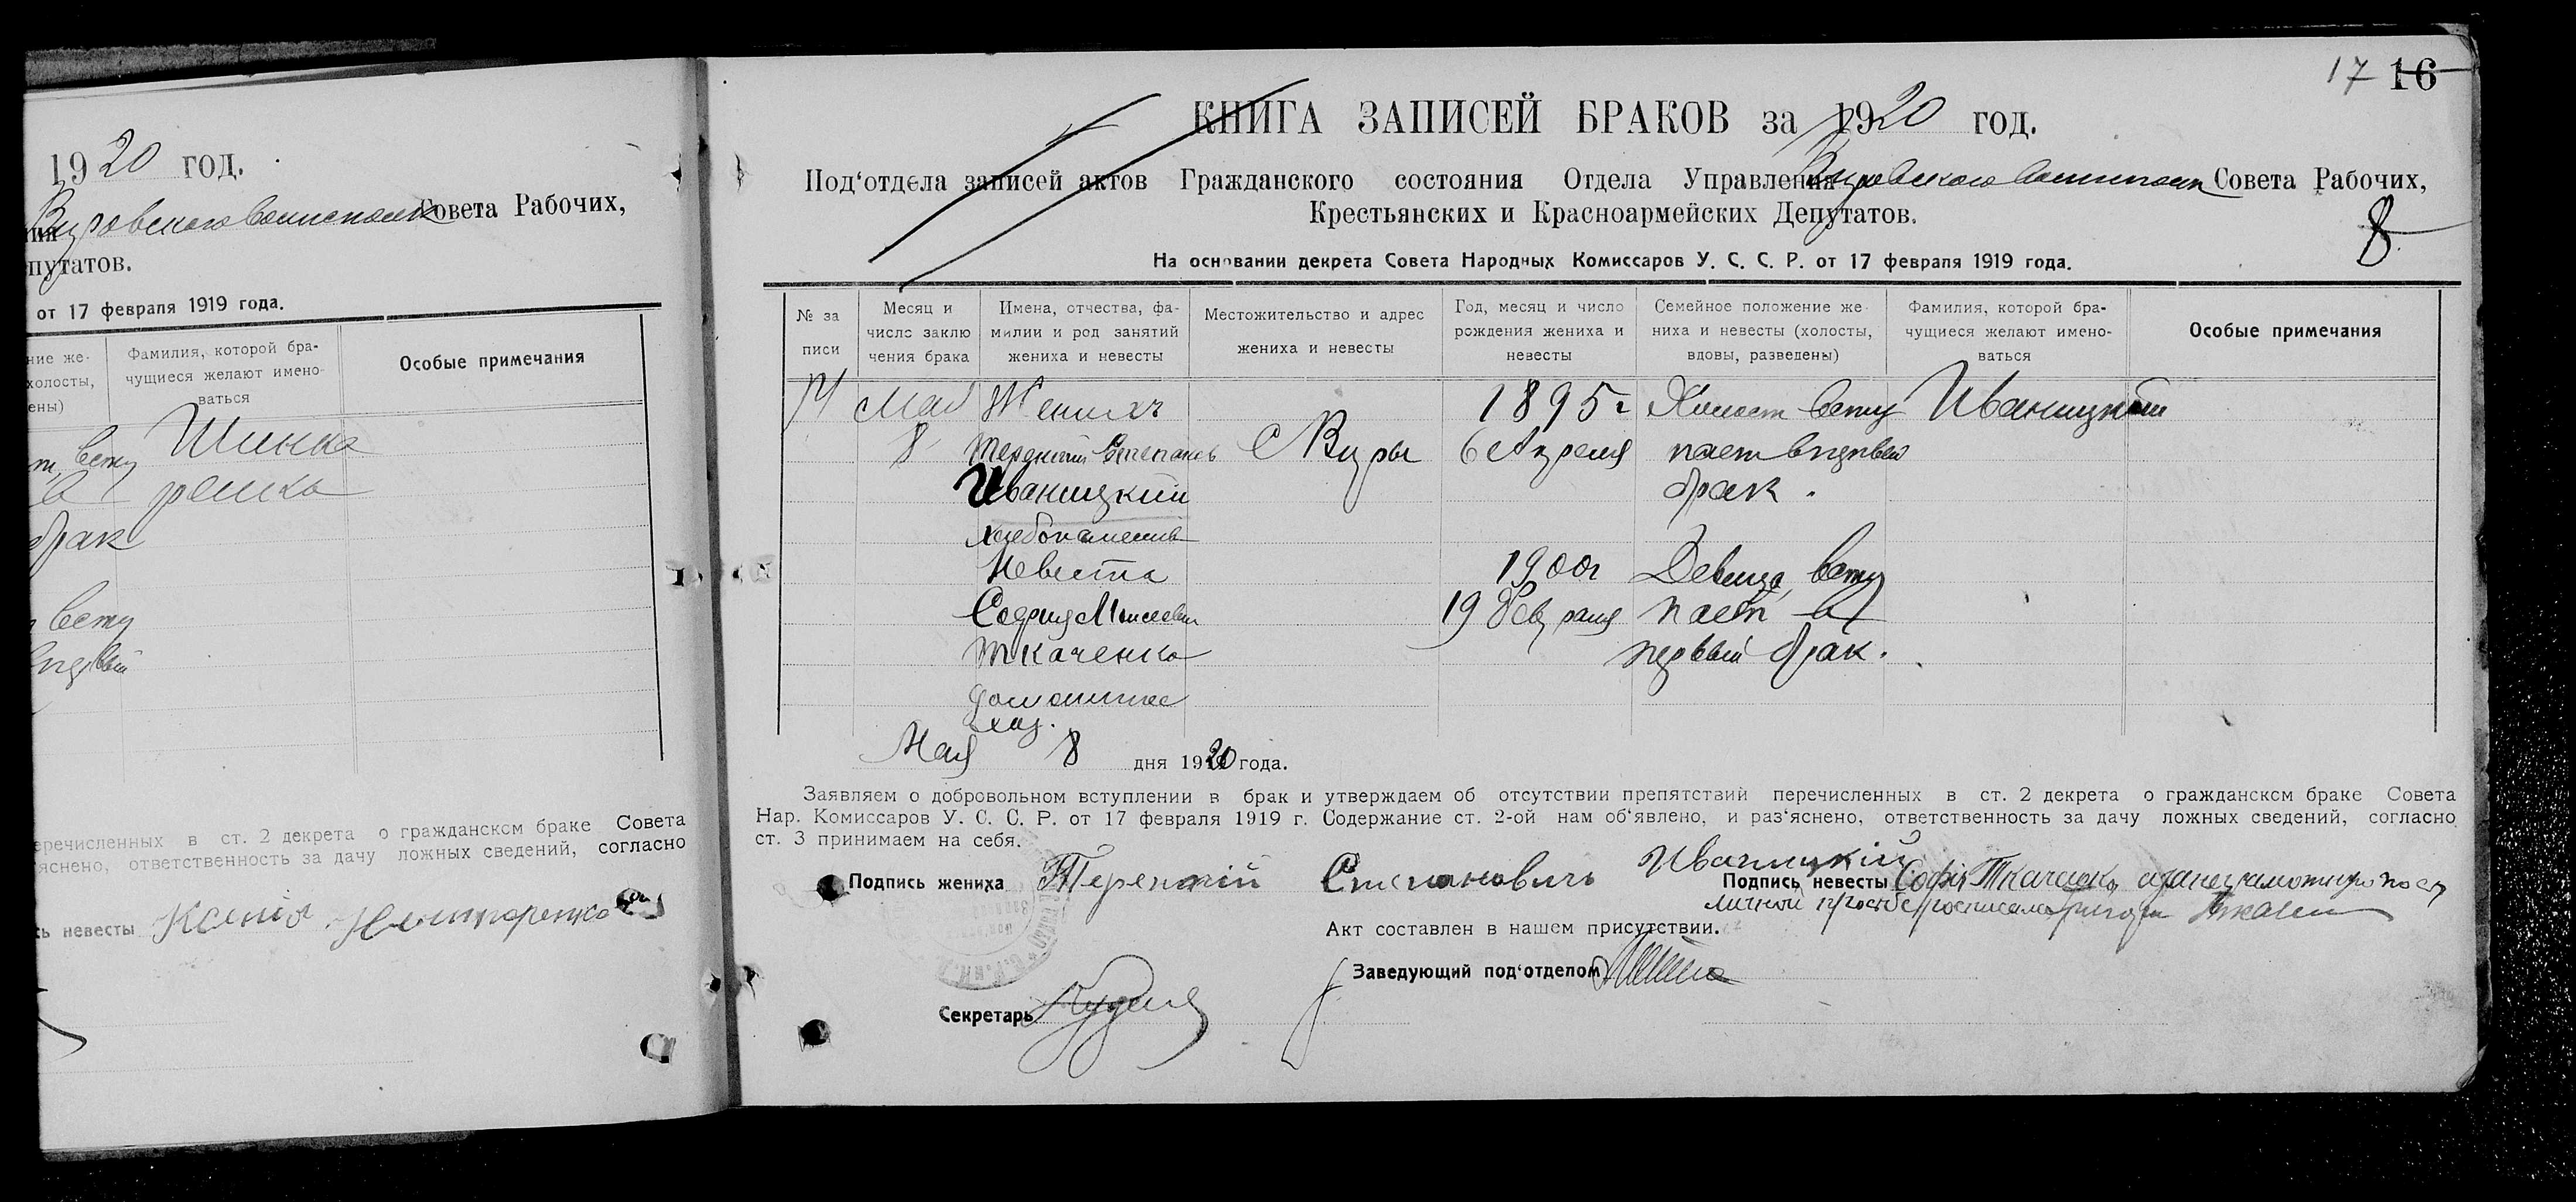 1920 год.
Вировского Волисполк Совета Рабочих,
путатов.
от 17 февраля 1919 года.
ние же-
холосты,
ены)
Фамилия, которой бра-
чущиеся желают имено-
ваться
Особые примечания
Шинка
ренко
брак
вступ
еречисленных в ст. 2 декрета о гражданском браке Совета
яснено, ответственность за дачу ложных сведений, согласно
ь невесты Ксенія
17 16
КНИГА ЗАПИСЕЙ БРАКОВ за 1920 год.
Под‘отдела записей актов Гражданского состояния Отдела Управления Вировского Волисполк Совета Рабочих,
Крестьянских и Красноармейских Депутатов.
8
На основании декрета Совета Народных Комиссаров У. С. С. Р. от 17 февраля 1919 года.
№ за
писи
Месяц и
число заклю
чения брака
Имена, отчества, фа-
милии и род занятий
жениха и невесты
Местожительство и адрес
жениха и невесты
Год, месяц и число
рождения жениха и
невесты
Семейное положение же-
ниха и невесты (холосты,
вдовы, разведены)
Фамилия, которой бра-
чущиеся желают имено-
ваться
Особые примечания
14 Май Жених 1895 г Холост вступ Иваницкий
8 Терентий Степанов С Виры 6 Апреля пает впервые
Иваницкий брак.
хлебопашец
Невеста 1900 г Девица, вступ
София Моисеевн 19 Февраля пает в
Ткаченко первый брак.
домашнее
хоз.
Мая 8 дня 1920 года.
Заявляем о добровольном вступлении в брак и утверждаем об отсутствии препятствий перечисленных в ст. 2 декрета о гражданском браке Совета
Нар. Комиссаров У. С. С. Р. от 17 февраля 1919 г. Содержание ст. 2-ой нам об‘явлено, и раз‘яснено, ответственность за дачу ложных сведений, согласно
ст. 3 принимаем на себя.
Подпись жениха Терентій Степановичь Иваницкій
Подпись невесты Софія Ткаченко а за неграмотную по ея
личной просьбе росписался Григорий
Акт составлен в нашем присутствии.
Заведующий под‘отделом
Секретарь